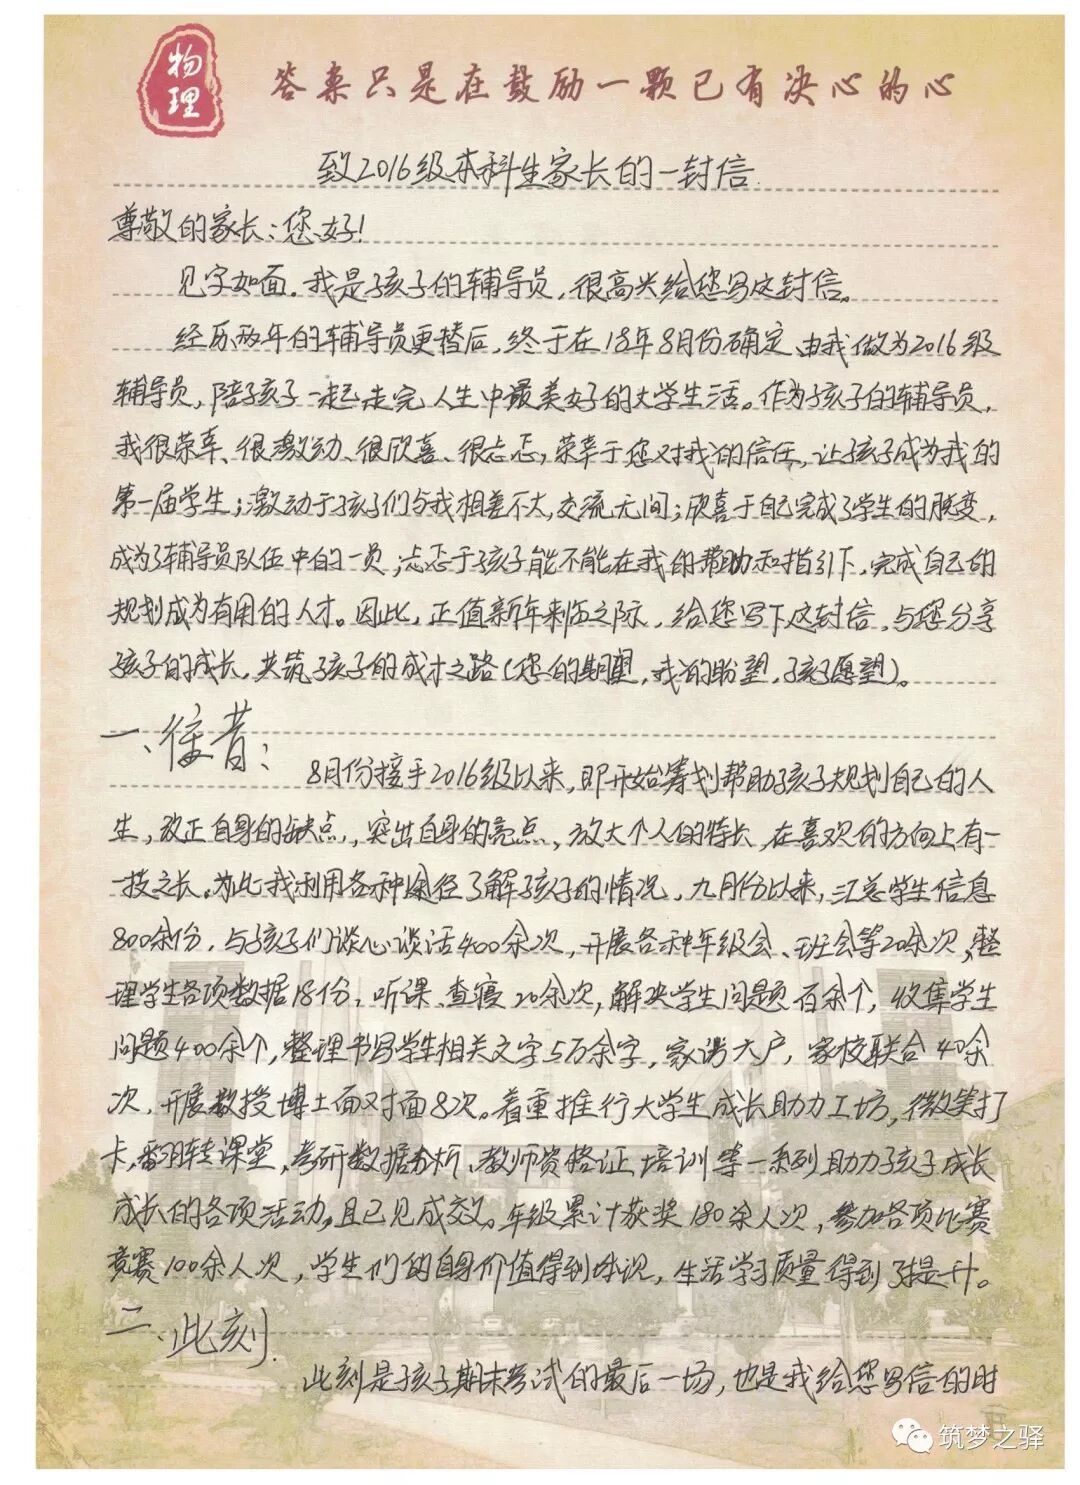 物理
答案只是在鼓励一颗已有决心的心
致2016级本科生家长的一封信
尊敬的家长：您好！
见字如面。我是孩子的辅导员，很高兴给您写这封信。
经历两年的辅导员更替后，终于在18年8月份确定由我做为2016级
辅导员，陪孩子一起走完人生中最美好的大学生活。作为孩子的辅导员，
我很荣幸、很激动、很欣喜、很忐忑，荣幸于您对我的信任，让孩子成为我的
第一届学生；激动于孩子们与我相差不大，交流无间；欣喜于自己完成了学生的脱变，
成为了辅导员队伍中的一员；忐忑于孩子能不能在我的帮助和指引下，完成自己的
规划成为有用的人才。因此，正值新年来临之际，给您写下这封信，与您分享
孩子的成长，共筑孩子的成才之路（您的期望，我的盼望，孩子愿望）。
一、往昔：
8月份接手2016级以来，即开始筹划帮助孩子规划自己的人
生，改正自身的缺点，突出自身的亮点，放大个人的特长，在喜欢的方向上有一
技之长。为此我利用各种途径了解孩子的情况，九月份以来，汇总学生信息
800余份，与孩子们谈心谈话400余次，开展各种年级会、班会等20余次，整
理学生各项数据18份，听课、查寝20余次，解决学生问题百余个，收集学生
问题400余个，整理书写学生相关文字5万余字，家访六户，家校联合40余
次，开展教授博士面对面8次。着重推行大学生成长助力工坊，微笑打
卡，翻转课堂，考研数据分析、教师资格证培训等一系列助力孩子成长
成长的各项活动，且已见成效。年级累计获奖180余人次，参加各项比赛
竞赛100余人次，学生们的自身价值得到体现，生活学习质量得到了提升。
二、此刻.
此刻是孩子期末考试的最后一场，也是我给您写信的时
筑梦之驿